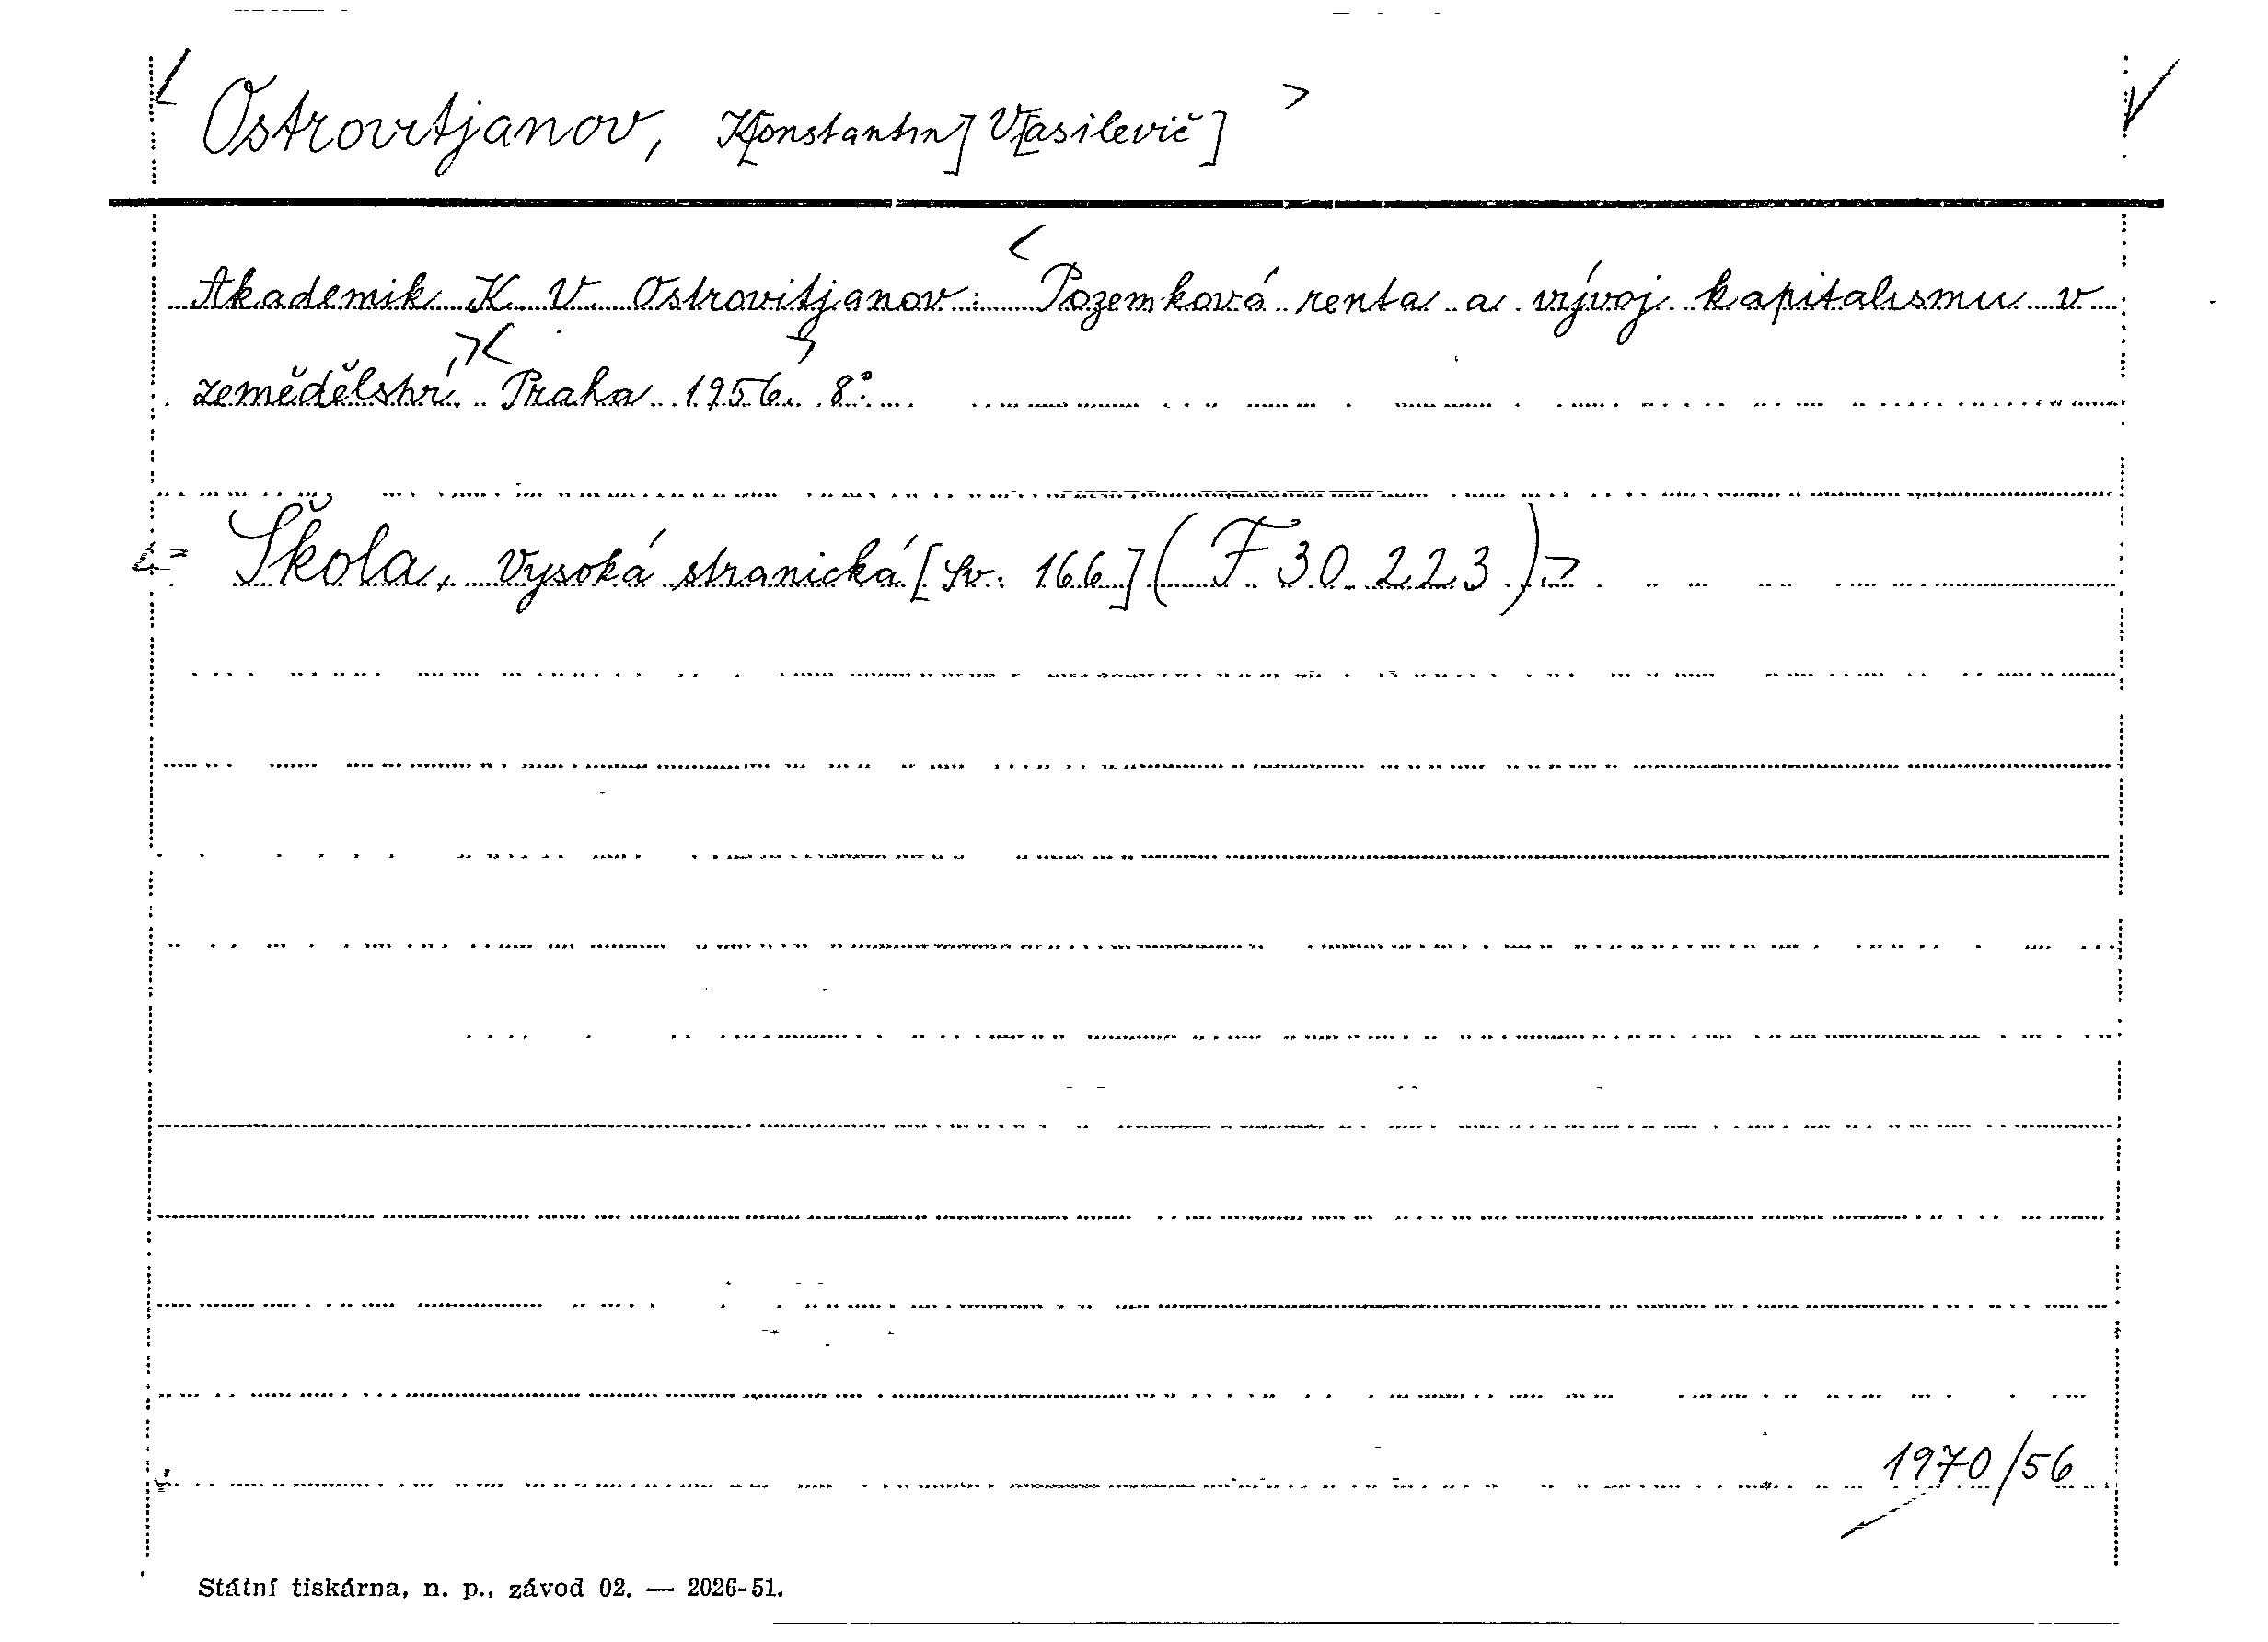 Ostrovitjanov, K[onstantin] V[asilevič]
Akademik K. V. Ostrovitjanov: Pozemková renta a vývoj kapitalismu v
zemědělství. Praha 1956. 8°.
= Škola, Vysoká stranická [Sv. 166] (F 30.223)
1970/56
Státní tiskárna, n. p., závod 02. — 2026-51.